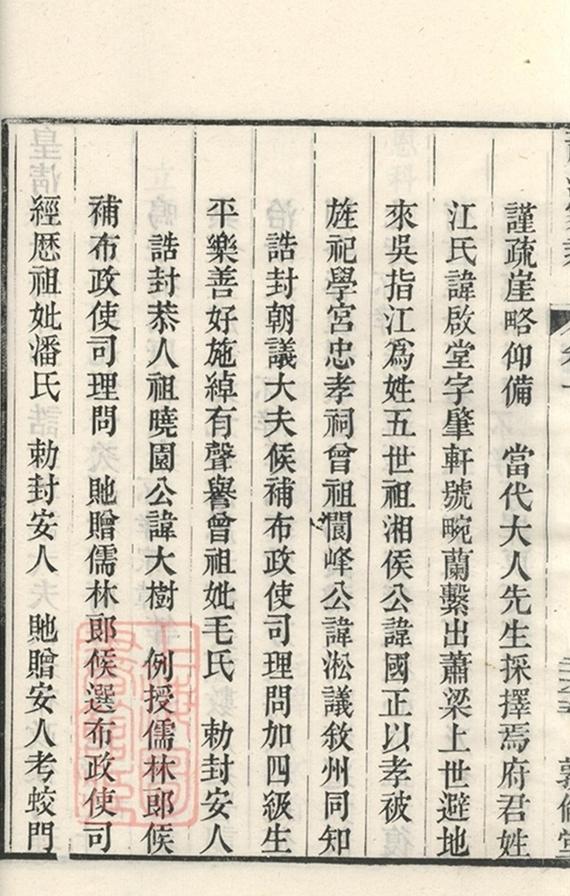 謹疏崖略仰備　當代大人先生採擇焉府君姓
江氏諱啟堂字肇軒號畹蘭繫出蕭梁上世避地
來吳指江爲姓五世祖湘侯公諱國正以孝被
旌祀學宮忠孝祠曾祖閬峰公諱淞議敘州同知
誥封朝議大夫候補布政使司理問加四級生
平樂善好施綽有聲譽曾祖妣毛氏　勅封安人
誥封恭人祖曉園公諱大樹　例授儒林郎候
補布政使司理問　貤贈儒林郎候選布政使司
經厯祖妣潘氏　勅封安人　貤贈安人考蛟門